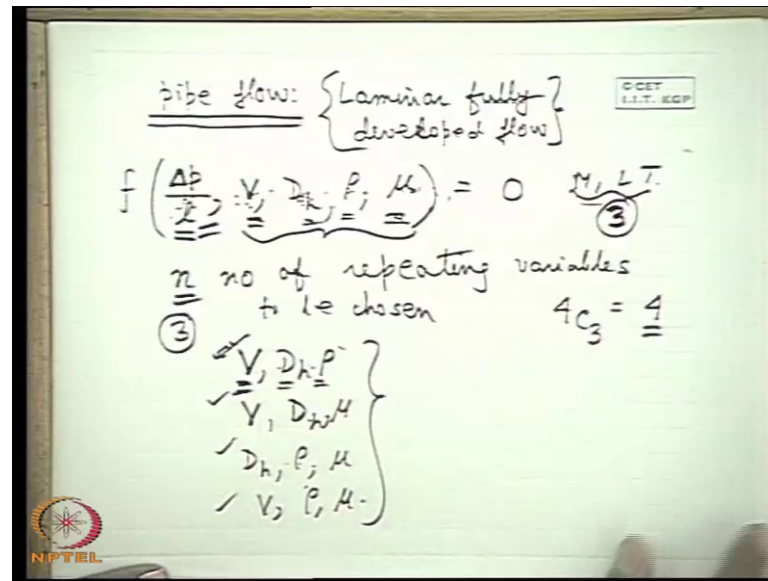 pipe flow: {Laminar fully developed flow}
C CET
I.I.T. KGP
f(Δp/l, V, D_h, ρ, μ) = 0 M, L T.
③
n no of repeating variables
③ to be chosen 4C₃ = 4
V, D_h ρ
V, D_h, μ
D_h, ρ, μ
V, ρ, μ.
NPTEL